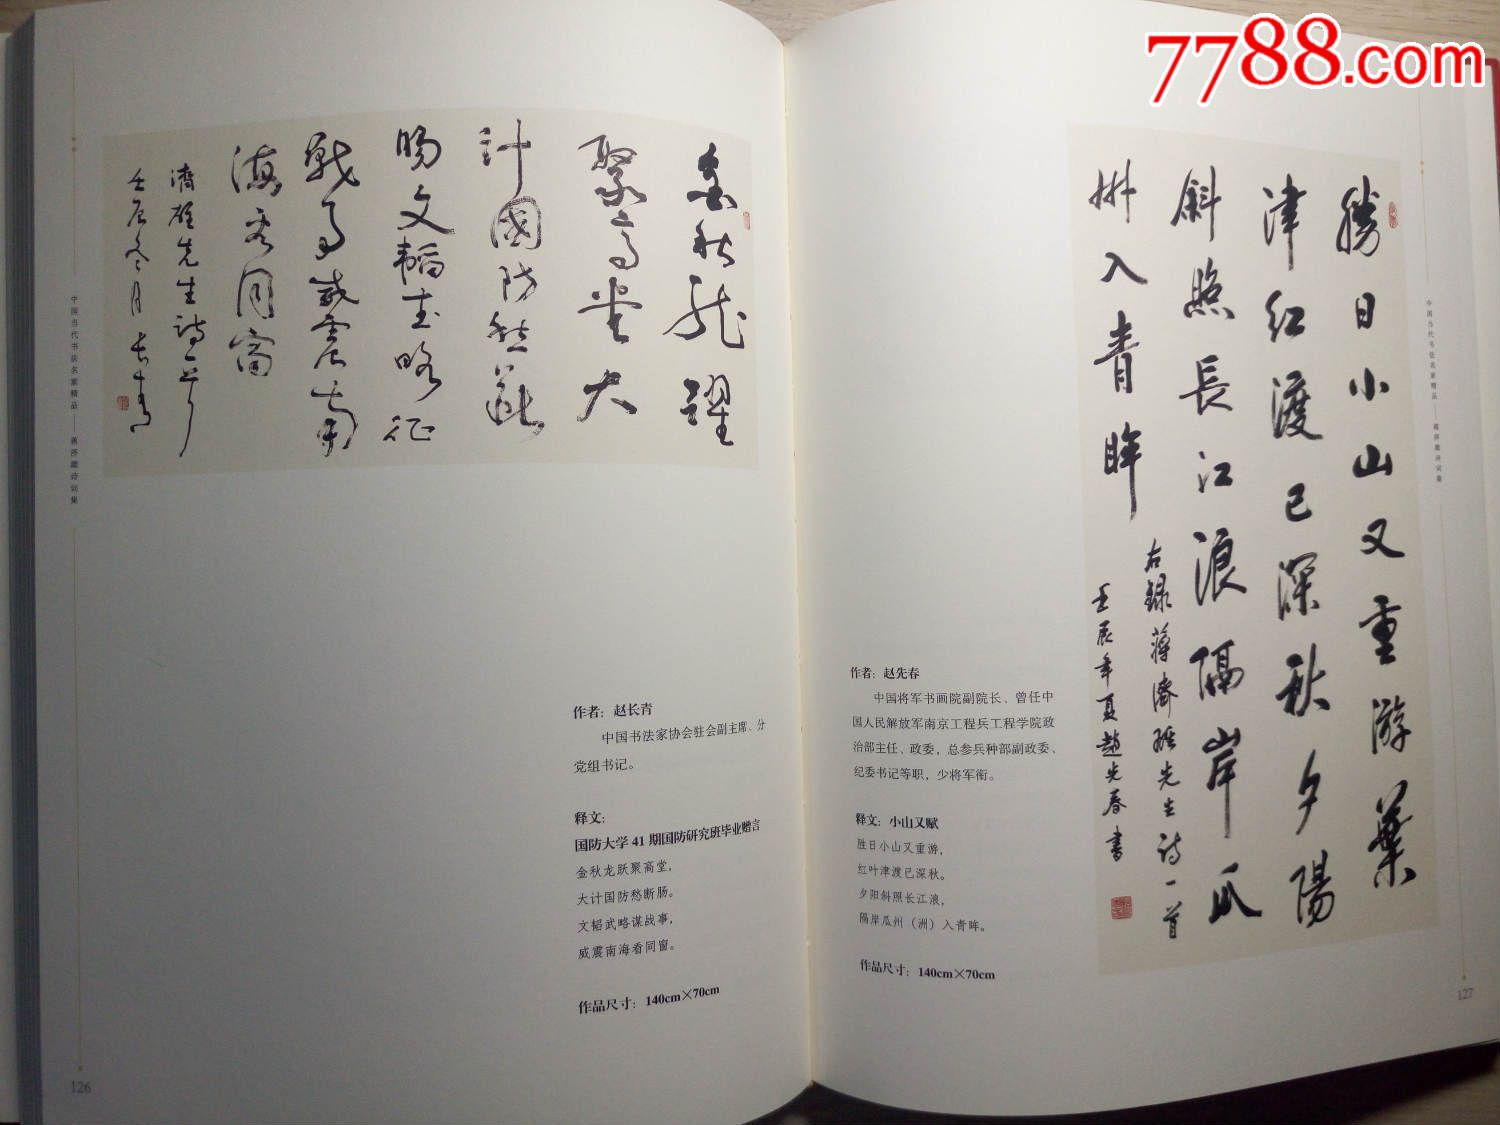 7788.com
中国当代书法名家精品——蒋济雄诗词集
金秋龍躍
聚高堂大
計國防愁斷
腸文韜武略征
戰事威震南
海看同窗
濟雄先生詩一首
壬辰冬月長青
作者：赵长青
中国书法家协会驻会副主席、分
党组书记。
释文：
国防大学 41 期国防研究班毕业赠言
金秋龙跃聚高堂，
大计国防愁断肠。
文韬武略谋战事，
威震南海看同窗。
作品尺寸：140cm×70cm
126
勝日小山又重游葉
津紅渡已深秋夕陽
斜照長江浪隔岸瓜
州入青眸
右録蔣濟雄先生詩一首
壬辰年夏趙先春書
作者：赵先春
中国将军书画院副院长、曾任中
国人民解放军南京工程兵工程学院政
治部主任、政委，总参兵种部副政委、
纪委书记等职，少将军衔。
释文：小山又赋
胜日小山又重游，
红叶津渡已深秋。
夕阳斜照长江浪，
隔岸瓜州（洲）入青眸。
作品尺寸：140cm×70cm
中国当代书法名家精品——蒋济雄诗词集
127